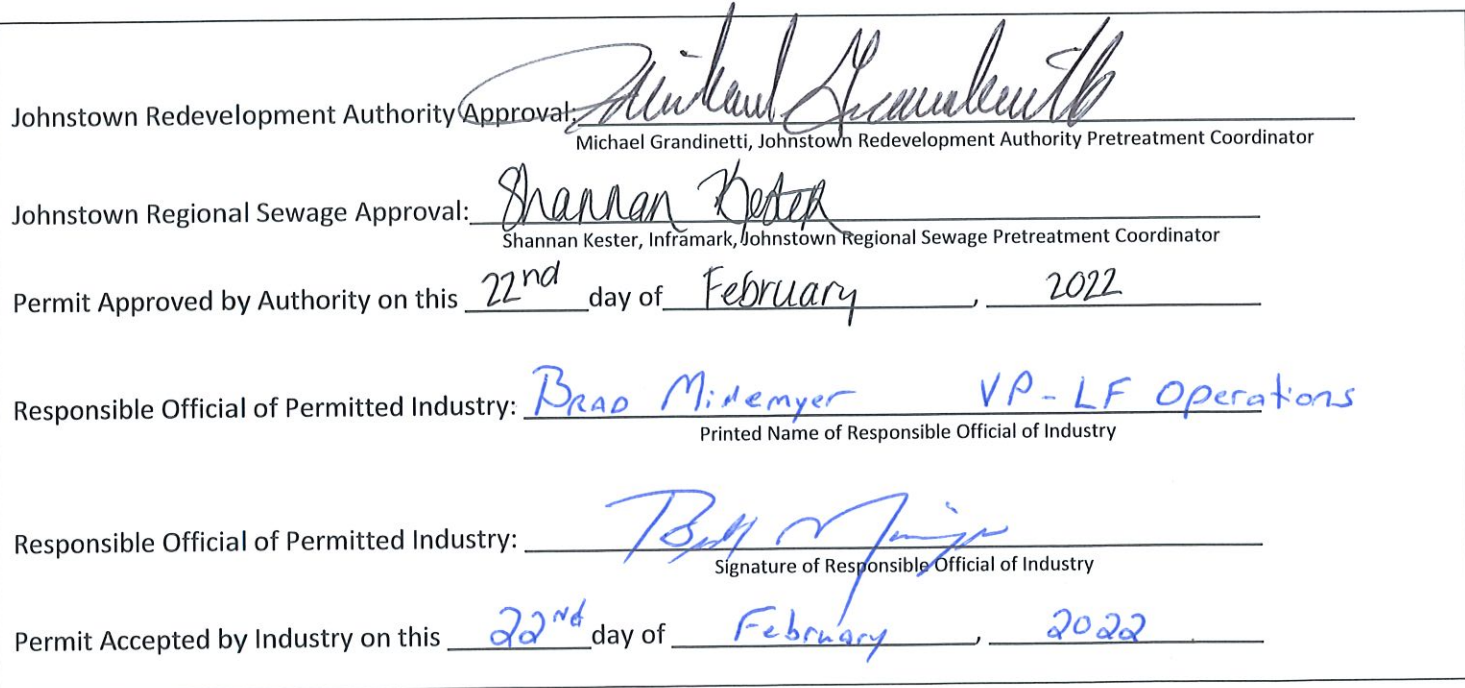 Johnstown Redevelopment Authority Approval: Michael Grandinetti
Michael Grandinetti, Johnstown Redevelopment Authority Pretreatment Coordinator
Johnstown Regional Sewage Approval: Shannan Kester
Shannan Kester, Inframark, Johnstown Regional Sewage Pretreatment Coordinator
Permit Approved by Authority on this 22nd day of February, 2022
Responsible Official of Permitted Industry: BRAD Minemyer VP - LF Operations
Printed Name of Responsible Official of Industry
Responsible Official of Permitted Industry:
Signature of Responsible Official of Industry
Permit Accepted by Industry on this 22nd day of February, 2022